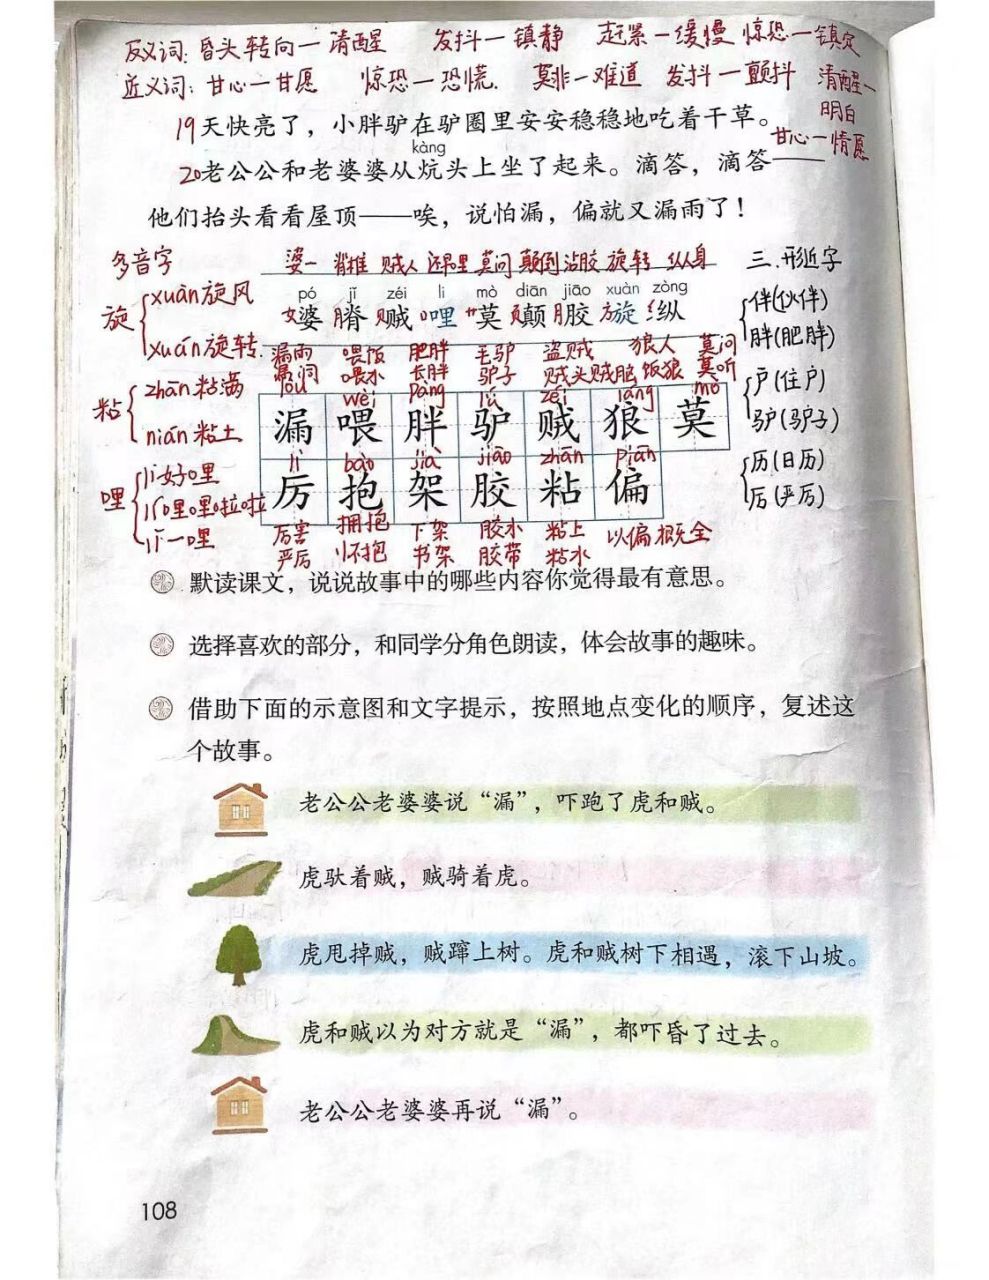 反义词：昏头转向一清醒 发抖一镇静 赶紧一缓慢 惊恐一镇定
近义词：甘心一甘愿 惊恐一恐慌. 莫非一难道 发抖一颤抖 清醒一
明白
甘心一情愿
19天快亮了，小胖驴在驴圈里安安稳稳地吃着干草。
kàng
20老公公和老婆婆从炕头上坐了起来。滴答，滴答——
他们抬头看看屋顶——唉，说怕漏，偏就又漏雨了！
多音字
旋
xuàn旋风
xuán旋转.
粘
zhān粘满
nián粘土
哩
lǐ好哩
lī哩哩啦啦
lǐ一哩
婆一 脊椎 贼人 莫问 颠倒 沾胶 旋转 纵身
pó jǐ zéi li mò diān jiāo xuàn zòng
婆 脊 贼 哩 莫 颠 胶 旋 纵
漏雨 喂饭 肥胖 毛驴 盗贼 狼人 莫问
漏洞 喂水 长胖 驴子 贼头贼脑 饭狼 莫听
lòu wèi pàng lǘ zéi láng mò
漏 喂 胖 驴 贼 狼 莫
lì bào jià jiāo zhān piān
厉 抱 架 胶 粘 偏
厉害 拥抱 下架 胶水 粘上 以偏概全
严厉 怀抱 书架 胶带 粘水
三.形近字
伴(伙伴)
胖(肥胖)
户(住户)
驴(驴子)
历(日历)
厉(严厉)
默读课文，说说故事中的哪些内容你觉得最有意思。
选择喜欢的部分，和同学分角色朗读，体会故事的趣味。
借助下面的示意图和文字提示，按照地点变化的顺序，复述这
个故事。
老公公老婆婆说“漏”，吓跑了虎和贼。
虎驮着贼，贼骑着虎。
虎甩掉贼，贼蹿上树。虎和贼树下相遇，滚下山坡。
虎和贼以为对方就是“漏”，都吓昏了过去。
老公公老婆婆再说“漏”。
108